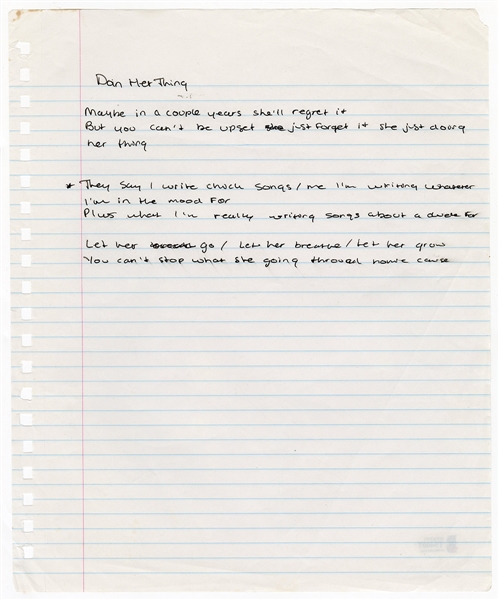 Doin Her Thing
Maybe in a couple years she'll regret it
But you can't be upset she just forget it she just doing
her thing
* They say I write chick songs / me I'm writing whatever
I'm in the mood for
Plus what I'm really writing songs about a dude for
Let her go / Let her breathe / Let her grow
You can't stop what she going through cause